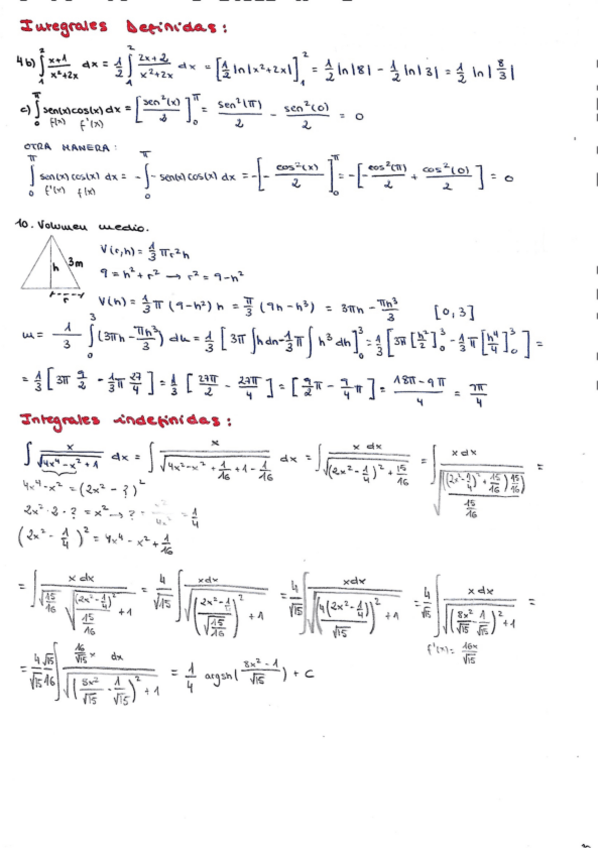 Integrales Definidas:
4b) ∫₁² (x+1)/(x²+2x) dx = 1/2 ∫₁² (2x+2)/(x²+2x) dx = [1/2 ln|x²+2x|]₁² = 1/2 ln|8| - 1/2 ln|3| = 1/2 ln|8/3|
c) ∫₀^π sen(x)cos(x)dx = [sen²(x)/2]₀^π = sen²(π)/2 - sen²(0)/2 = 0
f(x) f'(x)
OTRA MANERA:
∫₀^π sen(x)cos(x) dx = -∫₀^π -sen(x)cos(x) dx = -[-cos²(x)/2]₀^π = -[-cos²(π)/2 + cos²(0)/2] = 0
f'(x) f(x)
10. Volumen medio.
h 3m r
V(r,h) = 1/3 πr²h
9 = h² + r² → r² = 9-h²
V(h) = 1/3 π (9-h²) h = π/3 (9h-h³) = 3πh - πh³/3 [0,3]
m = 1/3 ∫₀³ (3πh - πh³/3) dh = 1/3 [3π∫hdh - 1/3 π∫h³dh]₀³ = 1/3 [3π[h²/2]₀³ - 1/3 π[h⁴/4]₀³] =
= 1/3 [3π 9/2 - 1/3 π 27/4] = 1/3 [27π/2 - 27π/4] = [9/2 π - 9/4 π] = (18π-9π)/4 = π/4
Integrales indefinidas:
∫ x/√(4x⁴-x²+1) dx = ∫ x/√(4x²-x²+1/16+1-1/16) dx = ∫ x dx/√((2x²-1/4)²+15/16) = ∫ x dx/√(((2x²-1/4)²+15/16)15/16)/(15/16)) =
4x⁴-x² = (2x²-?)²
2x²·2·? = x² → ? = 1/4
(2x²-1/4)² = 4x⁴-x²+1/16
= ∫ x dx/(√(15/16) √((2x²-1/4)²/(15/16)+1)) = 4/√15 ∫ xdx/√(((2x²-1/4)/√(15/16))²+1) = 4/√15 ∫ xdx/√((4(2x²-1/4)/√15)²+1) = 4/√15 ∫ x dx/√((8x²/√15-1/√15)²+1) =
f'(x) = 16x/√15
= 4/√15 √15/16 ∫ 16/√15 x dx/√((8x²/√15-1/√15)²+1) = 1/4 argsh((8x²-1)/√15) + C